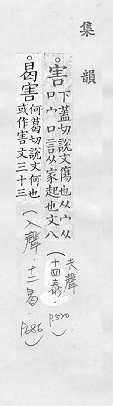 集韻
○害
下蓋切說文傷也从宀从
口宀口言从家起也文八
(去聲·十四泰·P520)
○曷害
何葛切說文何也
或作害文三十三
(入聲·十二曷·P686)